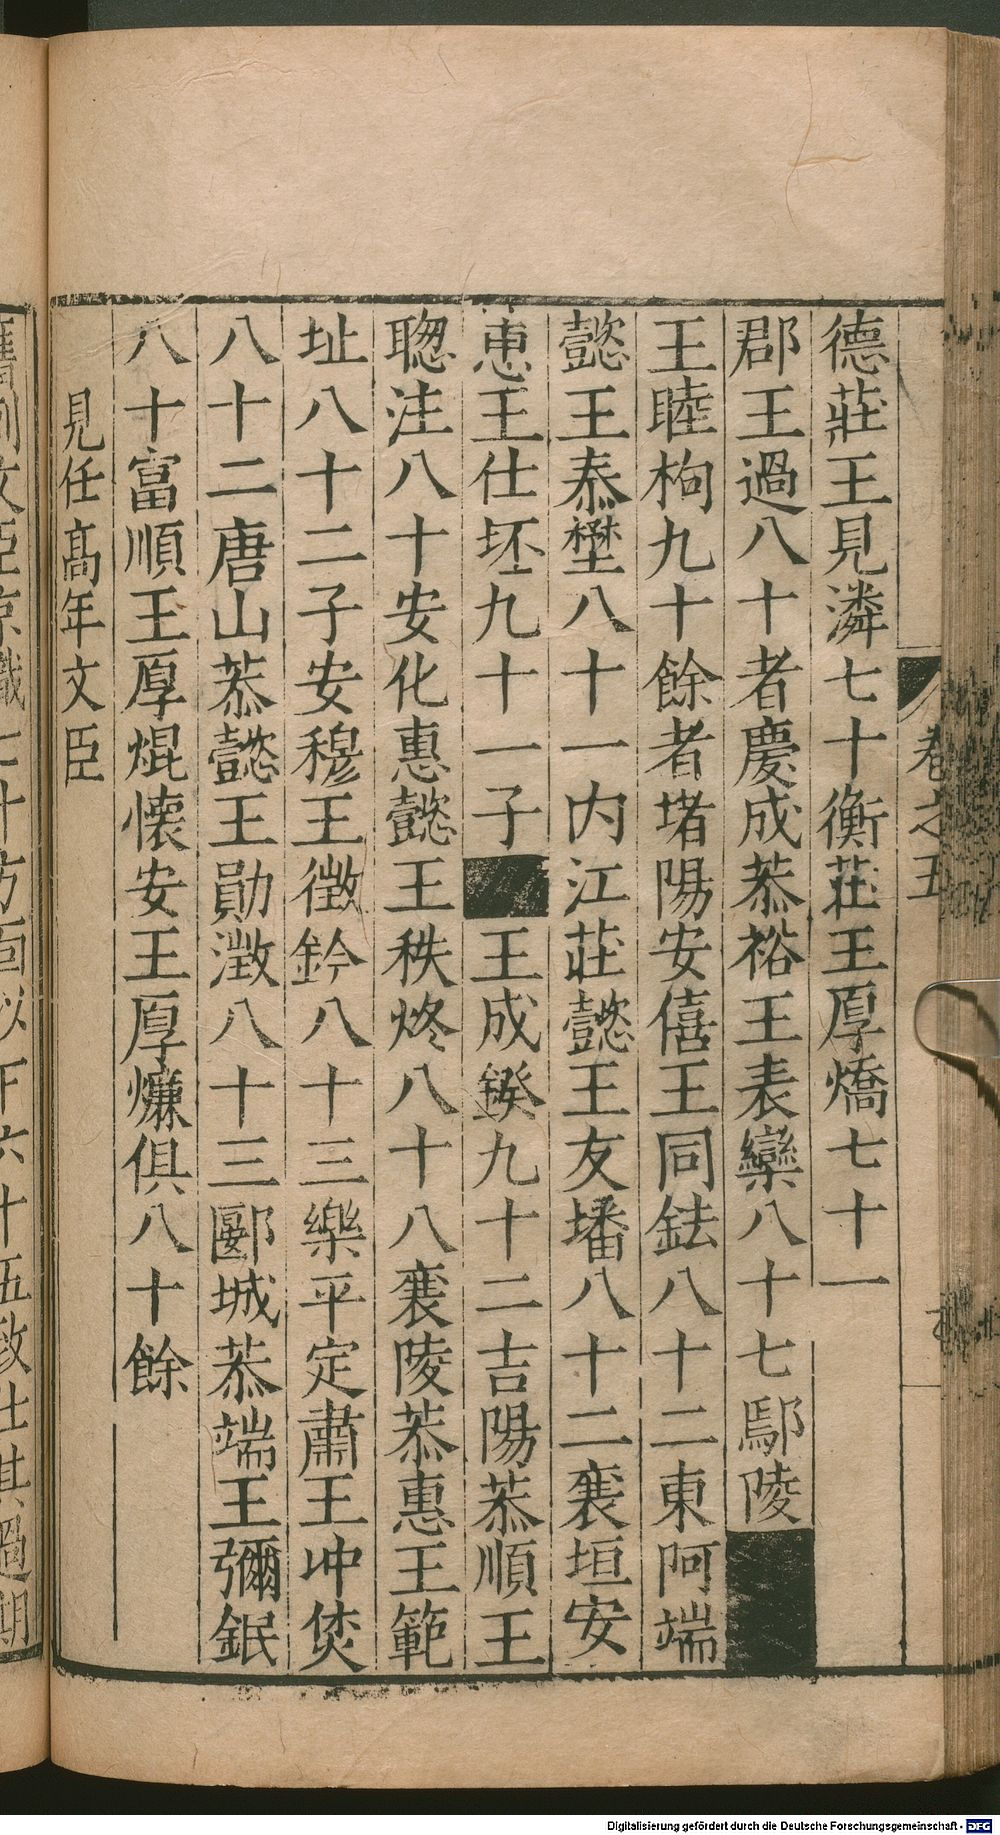 卷之五
德莊王見潾七十衡莊王厚燆七十一
郡王過八十者慶成恭裕王表欒八十七鄢陵
王睦枸九十餘者堵陽安僖王同鉣八十二東阿端
懿王泰壄八十一內江莊懿王友墦八十二襄垣安
惠王仕坯九十一子王成鍨九十二吉陽恭順王
聦洼八十安化惠懿王秩炵八十八襄陵恭惠王範
址八十二子安穆王徵鈐八十三樂平定肅王冲烶
八十二唐山恭懿王勛澂八十三郾城恭端王彌鉠
八十富順王厚焜懷安王厚熑俱八十餘
見任高年文臣